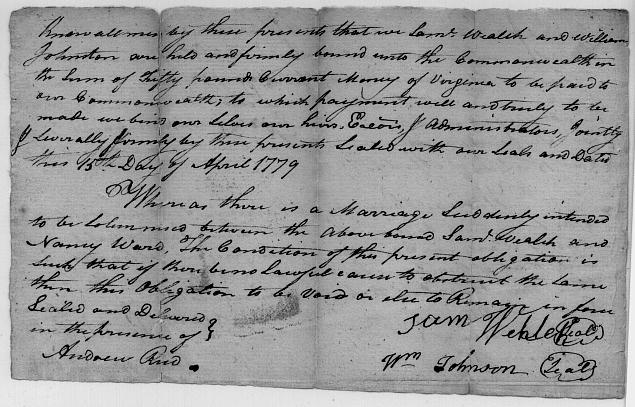 Know all men by these presents that we Saml. Wealsh and William
Johnston are held and firmly bound unto the Commonwealth in
the Sum of fifty pounds Currant Money of Virginia to be paid to
our Commonwealth; to which payment well and truly to be
made we bind our Selves our heirs, Exetors, Administrators, Jointly
& Severally firmly by these presents Sealed with our Seals and Dated
this 15th Day of April 1779
Whereas there is a Marriage Suddenly intended
to be Solemnised between the Above bound Saml. Wealsh and
Nancy Ward, The Condition of this present obligation is
Such that if there be no Lawful cause to obstruct the Same
then this Obligation to be Void or else to Remain in force
Sealed and Delivered
in the presence of
Andrew Reid
Sam Seal
Wm Johnson Seal